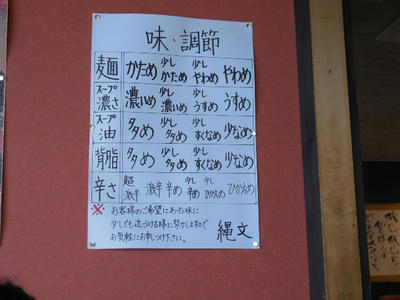 味・調節
麺 かため 少しかため 少しやわめ やわめ
スープ濃さ 濃いめ 少し濃いめ 少しうすめ うすめ
スープ油 多め 少し多め 少しすくなめ 少なめ
背脂 多め 少し多め 少しすくなめ 少なめ
辛さ 超激辛 激辛 辛め 少し辛め 少しひかえめ ひかえめ
※ お客様のご希望にあった味に
少しでも近づける様に努力しますので
お気軽にお申しつけ下さい。
縄文